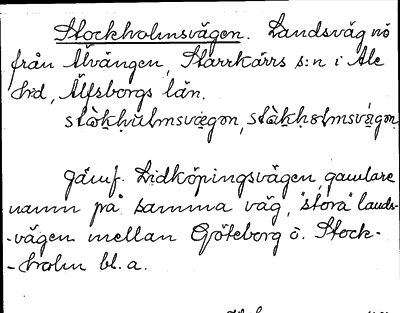 Stockholmsvägen. Landsväg nö
från Älvängen, Starrkärrs s:n i Ale
hrd, Älfsborgs län.
ståkhulmsvägon, ståkholmsvägon
jämf. Lidköpingsvägen, gamlare
namn på samma väg, "stora" lands-
-vägen mellan Göteborg o. Stock-
-holm bl. a.